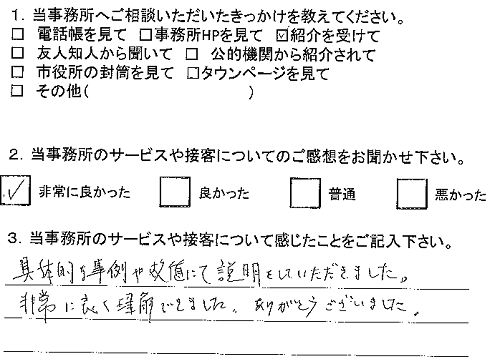 1．当事務所へご相談いただいたきっかけを教えてください。
□ 電話帳を見て □事務所HPを見て ☑紹介を受けて
□ 友人知人から聞いて □ 公的機関から紹介されて
□ 市役所の封筒を見て □タウンページを見て
□ その他( )
2．当事務所のサービスや接客についてのご感想をお聞かせ下さい。
☑ 非常に良かった □ 良かった □ 普通 □ 悪かった
3．当事務所のサービスや接客について感じたことをご記入下さい。
具体的な事例や数値にて説明をしていただきました。
非常に良く理解できました。ありがとうございました。